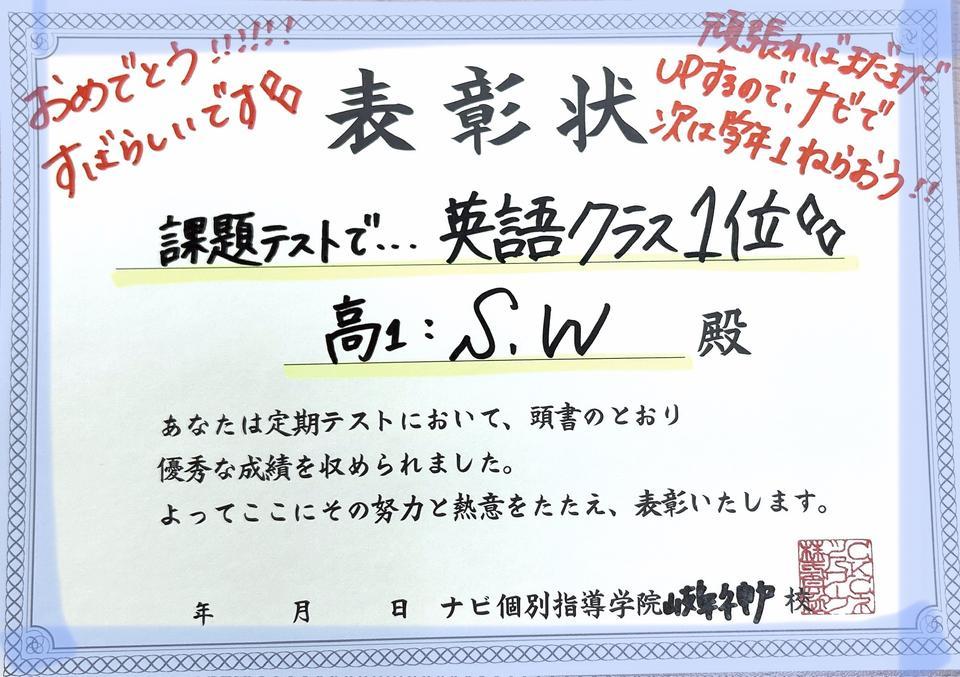 おめでとう!!!!!!
すばらしいです
頑張ればまだまだ
UPするので、ナビで
次は学年1ねらおう!!
表彰状
課題テストで... 英語クラス1位
高1: S.W 殿
あなたは定期テストにおいて、頭書のとおり
優秀な成績を収められました。
よってここにその努力と熱意をたたえ、表彰いたします。
年 月 日 ナビ個別指導学院岐阜神戸校